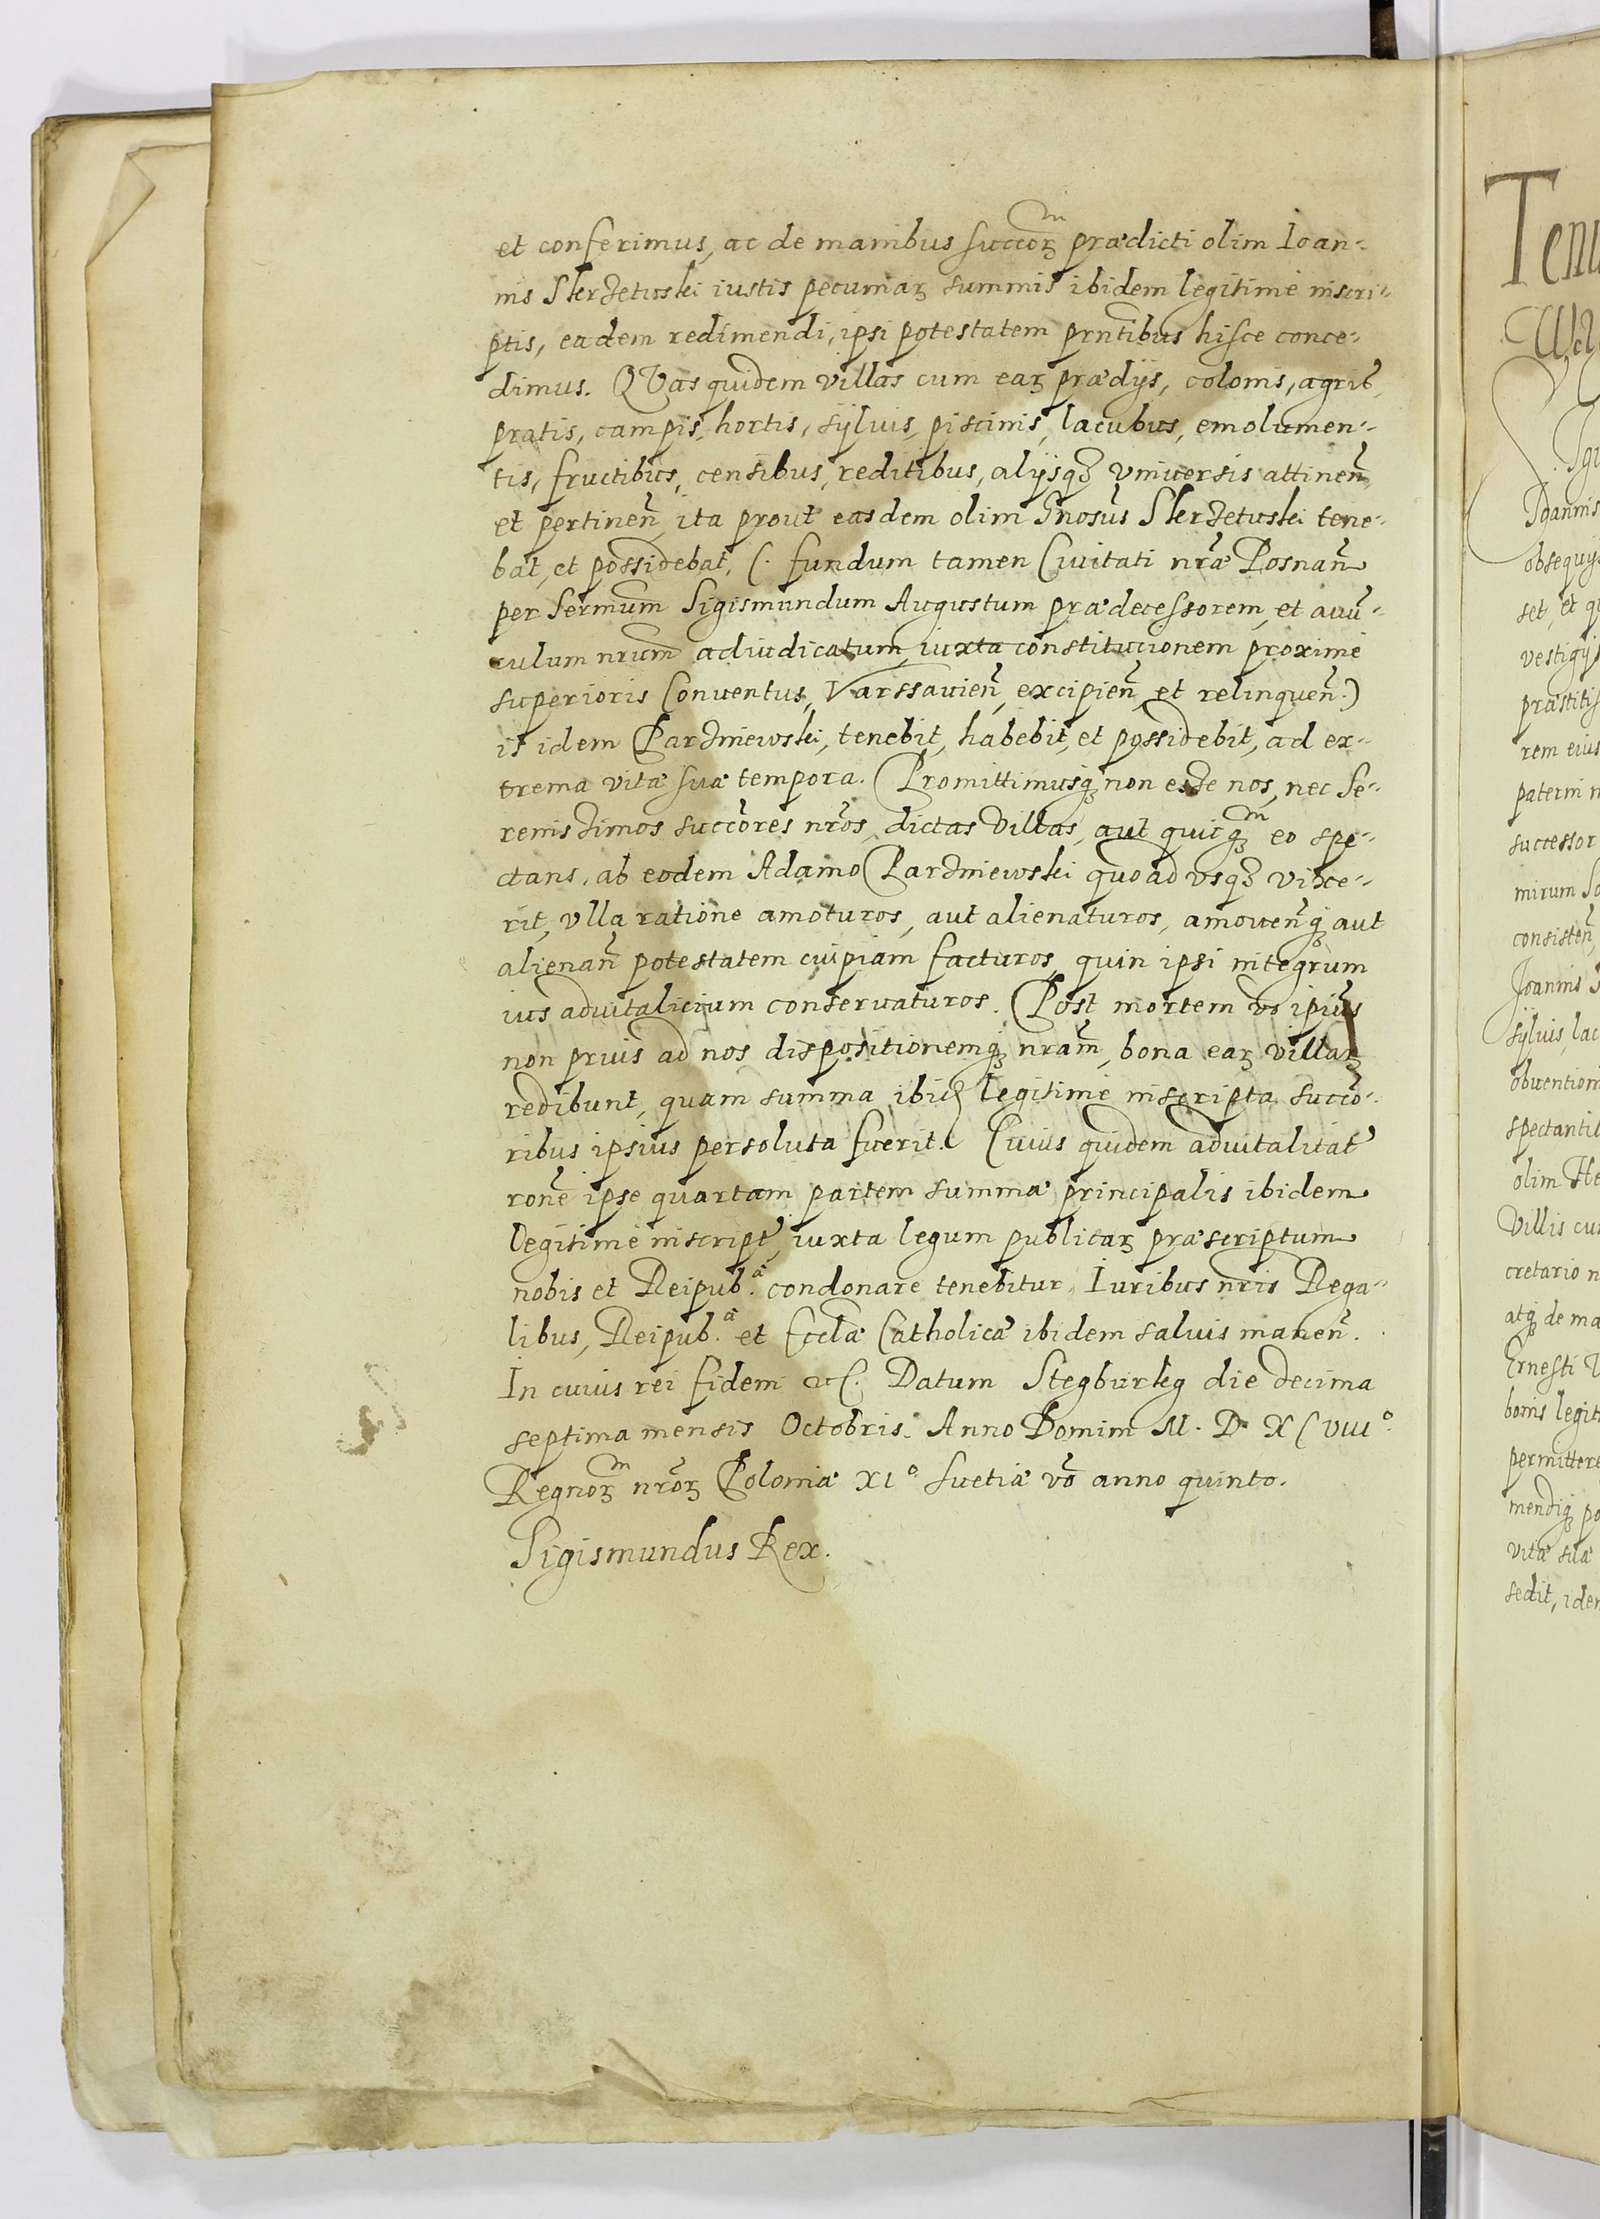 et conferimus, ac de manibus succor̃ꝝ prædicti olim Ioan-
nis Skrzetuski iustis pecuniaꝝ summis ibidem legitime inscri-
ptis, eadem redimendi, ipsi potestatem prñtibus hisce conce-
dimus. QVas quidem villas cum eaꝝ prædijs, colonis, agris,
pratis, campis, hortis, sÿluis, piscinis, lacubus, emolumen-
tis, fructibus, censibus, reditibus, alijsqꝫ vniuersis attineñ
et pertineñ, ita prout easdem olim Gnosũs Skrzetuski tene-
bat, et possidebat, (. fundum tamen Ciuitati nrãe Posnañ
per Sermũm Sigismundum Augustum prædecessorem, et auũ-
culum nrũm adiudicatum, iuxta constitucionem proxime
superioris Conuentus, Varssauieñ, excipieñ, et relinqueñ.)
is idem Parzniewski, tenebit, habebit, et possidebit, ad ex-
trema vitæ suæ tempora. Promittimusqꝫ non esse nos, nec Se-
renissimos succões nrõs, dictas villas, aut quicqꝫm eo spe-
ctans, ab eodem Adamo Parzniewski quoad vsqꝫ vixe-
rit, vlla ratione amoturos, aut alienaturos, amoueñqꝫ aut
alienañ potestatem cuipiam facturos, quin ipsi integrum
ius aduitalicium conseruaturos. Post mortem võ ipiũs
non prius ad nos dispositionemqꝫ nrãm, bona eaꝝ villaꝝ
redibunt, quam summa ibid legitime inscripta succõ-
ribus ipsius persoluta fuerit. Cuius quidem aduitalitat̃
ronẽ ipse quartam partem summæ principalis ibidem
legitime inscript̃, iuxta legum publicaꝝ præscriptum
nobis et Reipub.ᵃᵉ condonare tenebitur, Iuribus nrĩs Rega-
libus, Reipub.ᵃᵉ et Ecclæ̃ Catholicæ ibidem saluis maneñ.
In cuius rei fidem &c. Datum Stegburkg die decima
septima mensis Octobris. Anno Domini M. D. XCVIIIº.
Regnoꝝ nrõꝝ Poloniæ XIº Suetiæ võ anno quinto.
Sigismundus Rex.
Ioannis
obsequijs
vestigijs
rem eius
paterni
successor
consisteñ,
Ioannis
sÿluis, lac
spectantib
olim
Villis cum
cretario
atqꝫ de ma
Ernesti
bonis legit
permittere
mendiqꝫ po
vitæ suæ
sedit, idem